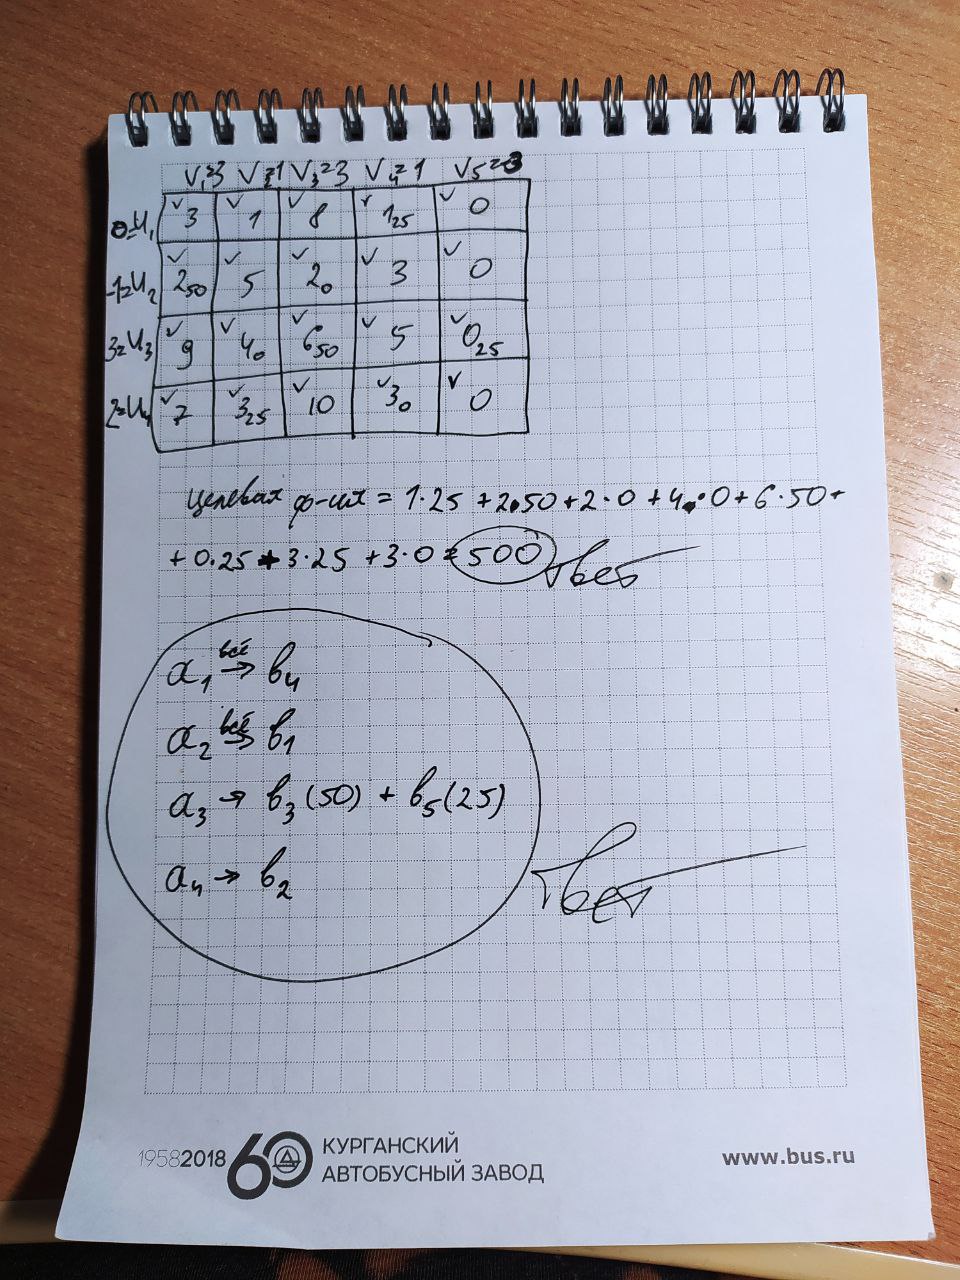 V₁=3 V₂=1 V₃=3 V₄=1 V₅=-3
0=U₁ 3 1 8 1₂₅ 0
-1=U₂ 2₅₀ 5 2₀ 3 0
3=U₃ 9 4₀ 6₅₀ 5 0₂₅
2=U₄ 7 3₂₅ 10 3₀ 0
Целевая ф-ция = 1·25 + 2·50 + 2·0 + 4·0 + 6·50 +
+ 0·25 + 3·25 + 3·0 = 500 Ответ
a₁ всё → b₄
a₂ всё → b₁
a₃ → b₃(50) + b₅(25)
a₄ → b₂
Ответ
19582018 60 КУРГАНСКИЙ
АВТОБУСНЫЙ ЗАВОД
www.bus.ru